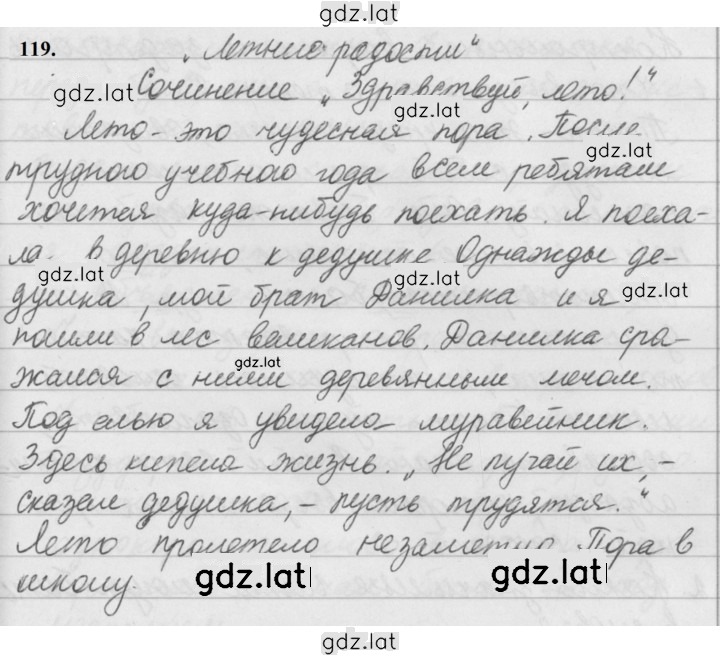 gdz.lat
119. „Летние радости“
gdz.lat Сочинение „Здравствуй, лето!“
gdz.lat
Лето - это чудесная пора. После
gdz.lat
трудного учебного года всем ребятам
хочется куда-нибудь поехать. Я поеха-
ла в деревню к дедушке Однажды де-
gdz.lat gdz.lat
душка, мой брат Данилка и я gdz.lat
пошли в лес великанов. Данилка сра-
gdz.lat
жался с ними деревянным мечом.
Под елью я увидела муравейник.
Здесь кипела жизнь. „Не пугай их, -
сказал дедушка, - пусть трудятся.“
Лето пролетело незаметно. Пора в
школу. gdz.lat gdz.lat
gdz.lat